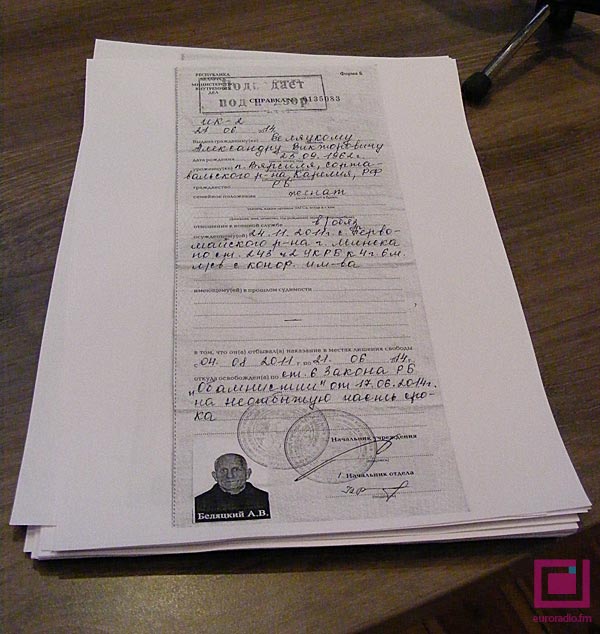 РЕСПУБЛИКА
БЕЛАРУСЬ
МИНИСТЕРСТВО
ВНУТРЕННИХ
ДЕЛ
Форма Б
СПРАВКА № 0135083
ИК-2
21 06 14
Выдана гражданину(ке) Беляцкому
Александру Викторовичу
дата рождения 25.09.1962г.
уроженцу(ке) п. Вяртсиля, сорта-
вальского р-на, Карелия, РФ
гражданство РБ
семейное положение женат
отношении к военной службе в/обяз
осужденному(ой) 24.11.2011г. с. Перво-
майского р-на г. Минска
по ст. 243 ч 2 УК РБ к 4г. 6м.
л/св с конф. им-ва
имеющему(ей) в прошлом судимости
—
в том, что он(а) отбывал(а) наказание в местах лишения свободы
с 04. 08 2011 г. по 21. 06 14г.
откуда освобожден(а) по ст. 6 Закона РБ
„Об амнистии" от 17.06.2014г.
на неотбытую часть сро-
ка
Начальник учреждения
Начальник отдела
Беляцкий А.В.
euroradio.fm